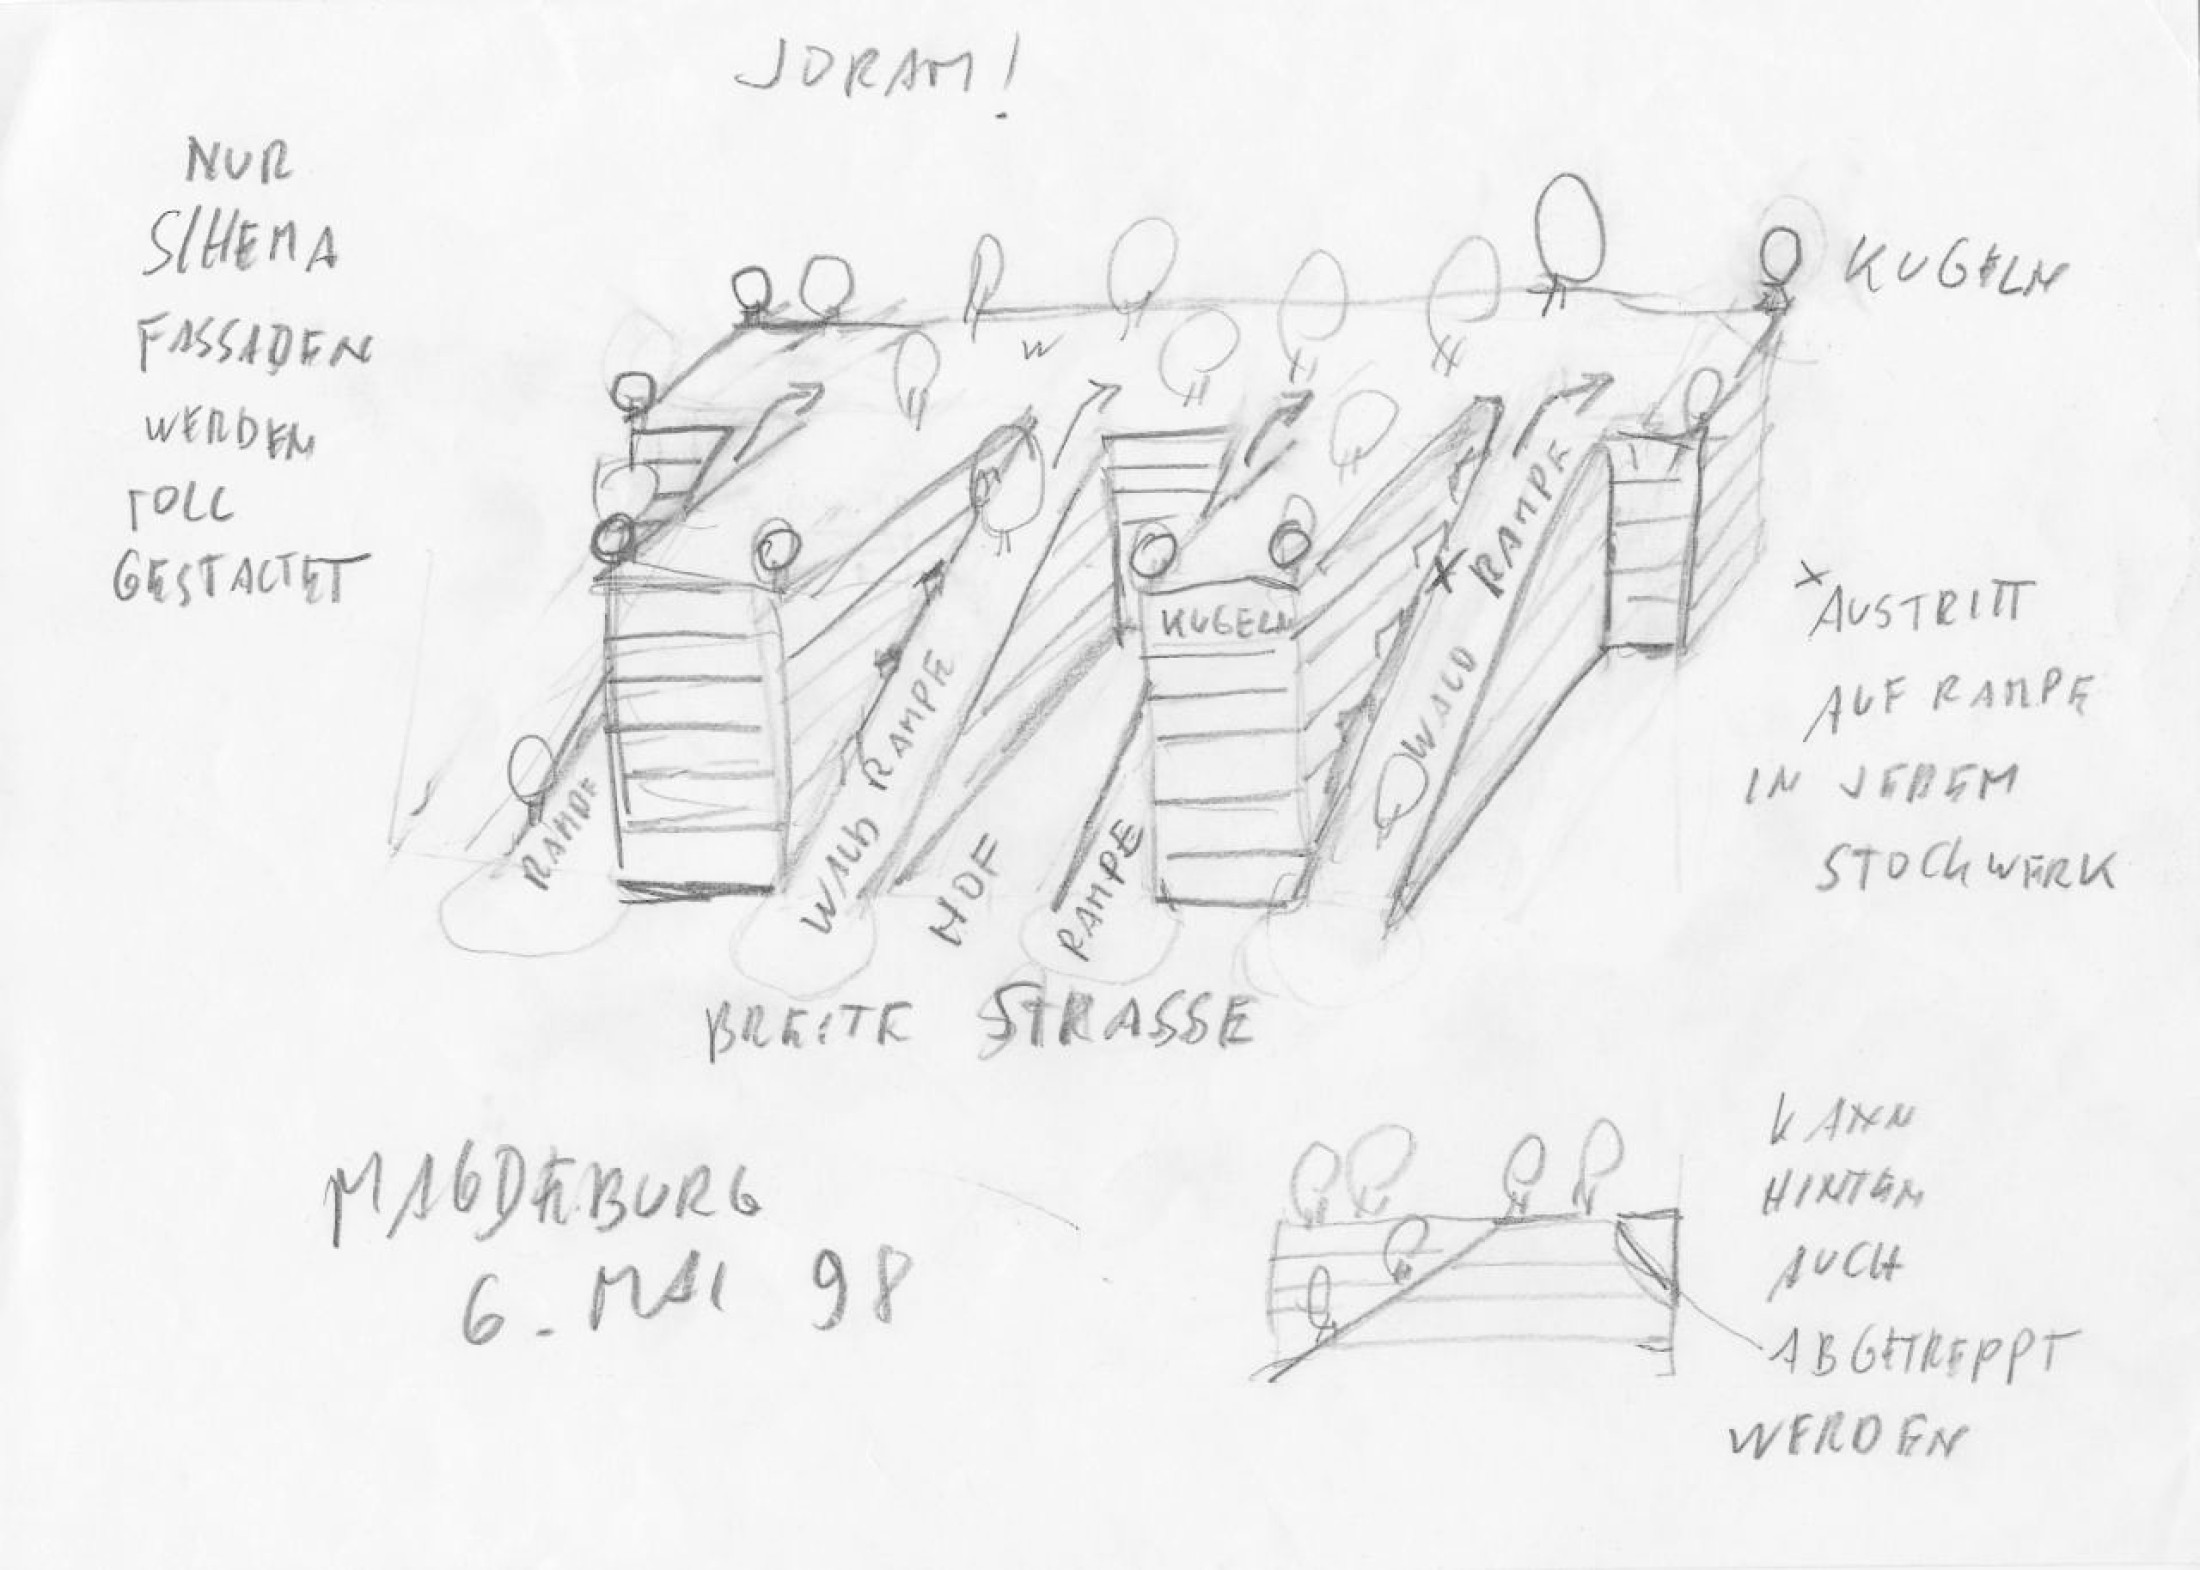 JORAM!
NUR
SCHEMA
FASSADEN
WERDEN
TOLL
GESTALTET
KUGELN
W
RAMPE
WALD RAMPE
HOF
RAMPE
KUGELN
WALD RAMPE
X
X AUSTRITT
AUF RAMPE
IN JEDEM
STOCKWERK
BREITE STRASSE
MAGDEBURG
6. MAI 98
KANN
HINTEN
AUCH
ABGETREPPT
WERDEN